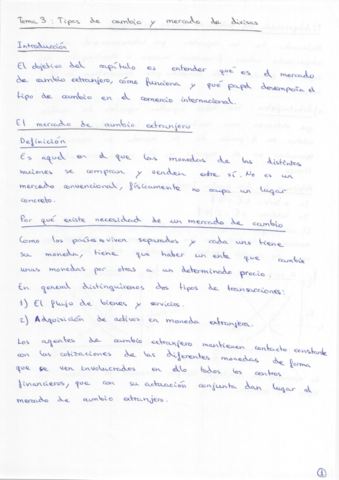 Tema 3: Tipos de cambio y mercado de divisas
Introducción
El objetivo del capítulo es entender qué es el mercado
de cambio extranjero, cómo funciona y qué papel desempeña el
tipo de cambio en el comercio internacional.
El mercado de cambio extranjero
Definición
Es aquel en el que las monedas de las distintas
naciones se compran y venden entre sí. No es un
mercado convencional, físicamente no ocupa un lugar
concreto.
Por qué existe necesidad de un mercado de cambio
Como los países viven separados y cada uno tiene
su moneda, tiene que haber un ente que cambie
unas monedas por otras a un determinado precio.
En general distinguiremos dos tipos de transacciones:
1) El flujo de bienes y servicios.
2) Adquisición de activos en moneda extranjera.
Los agentes de cambio extranjero mantienen contacto constante
con las cotizaciones de las diferentes monedas de forma
que se ven involucrados en ello todos los centros
financieros, que con su actuación conjunta dan lugar al
mercado de cambio extranjero.
1